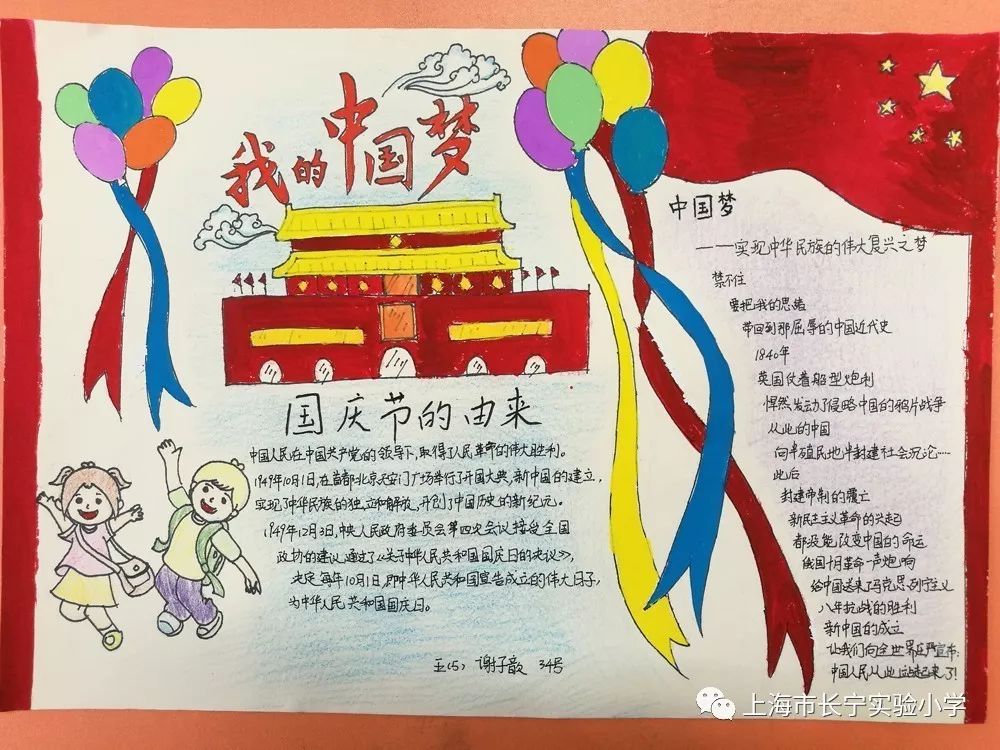 我的中国梦
国庆节的由来
中国人民在中国共产党的领导下,取得了人民革命的伟大胜利。
1949年10月1日,在首都北京天安门广场举行了开国大典,新中国的建立,
实现了中华民族的独立和解放,开创了中国历史的新纪元。
1949年12月3日,中央人民政府委员会第四次会议接受全国
政协的建议,通过了《关于中华人民共和国国庆日的决议》,
决定每年10月1日,即中华人民共和国宣告成立的伟大日子,
为中华人民共和国国庆日。
五(5) 谢子歆 34号
中国梦
——实现中华民族的伟大复兴之梦
禁不住
要把我的思绪
带回到那屈辱的中国近代史
1840年
英国仗着船型炮利
悍然发动了侵略中国的鸦片战争
从此的中国
向半殖民地半封建社会沉沦……
此后
封建帝制的覆亡
新民主主义革命的兴起
都没能改变中国的命运
俄国十月革命一声炮响
给中国送来了马克思列宁主义
八年抗战的胜利
新中国的成立
让我们向全世界庄严宣布:
中国人民从此站起来了!
上海市长宁实验小学